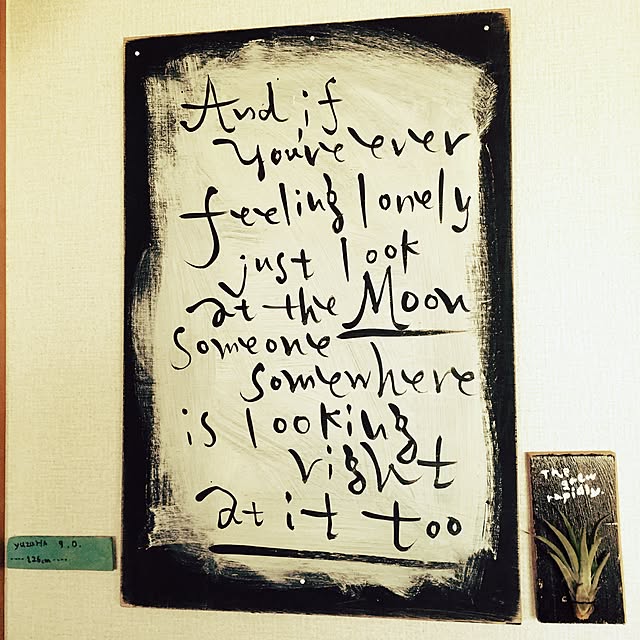 And if
you're ever
feeling lonely
just look
at the Moon
someone
somewhere
is looking
right
at it too
yuzuHA 9.0.
---- 126cm ----
The
grow
rapidly.